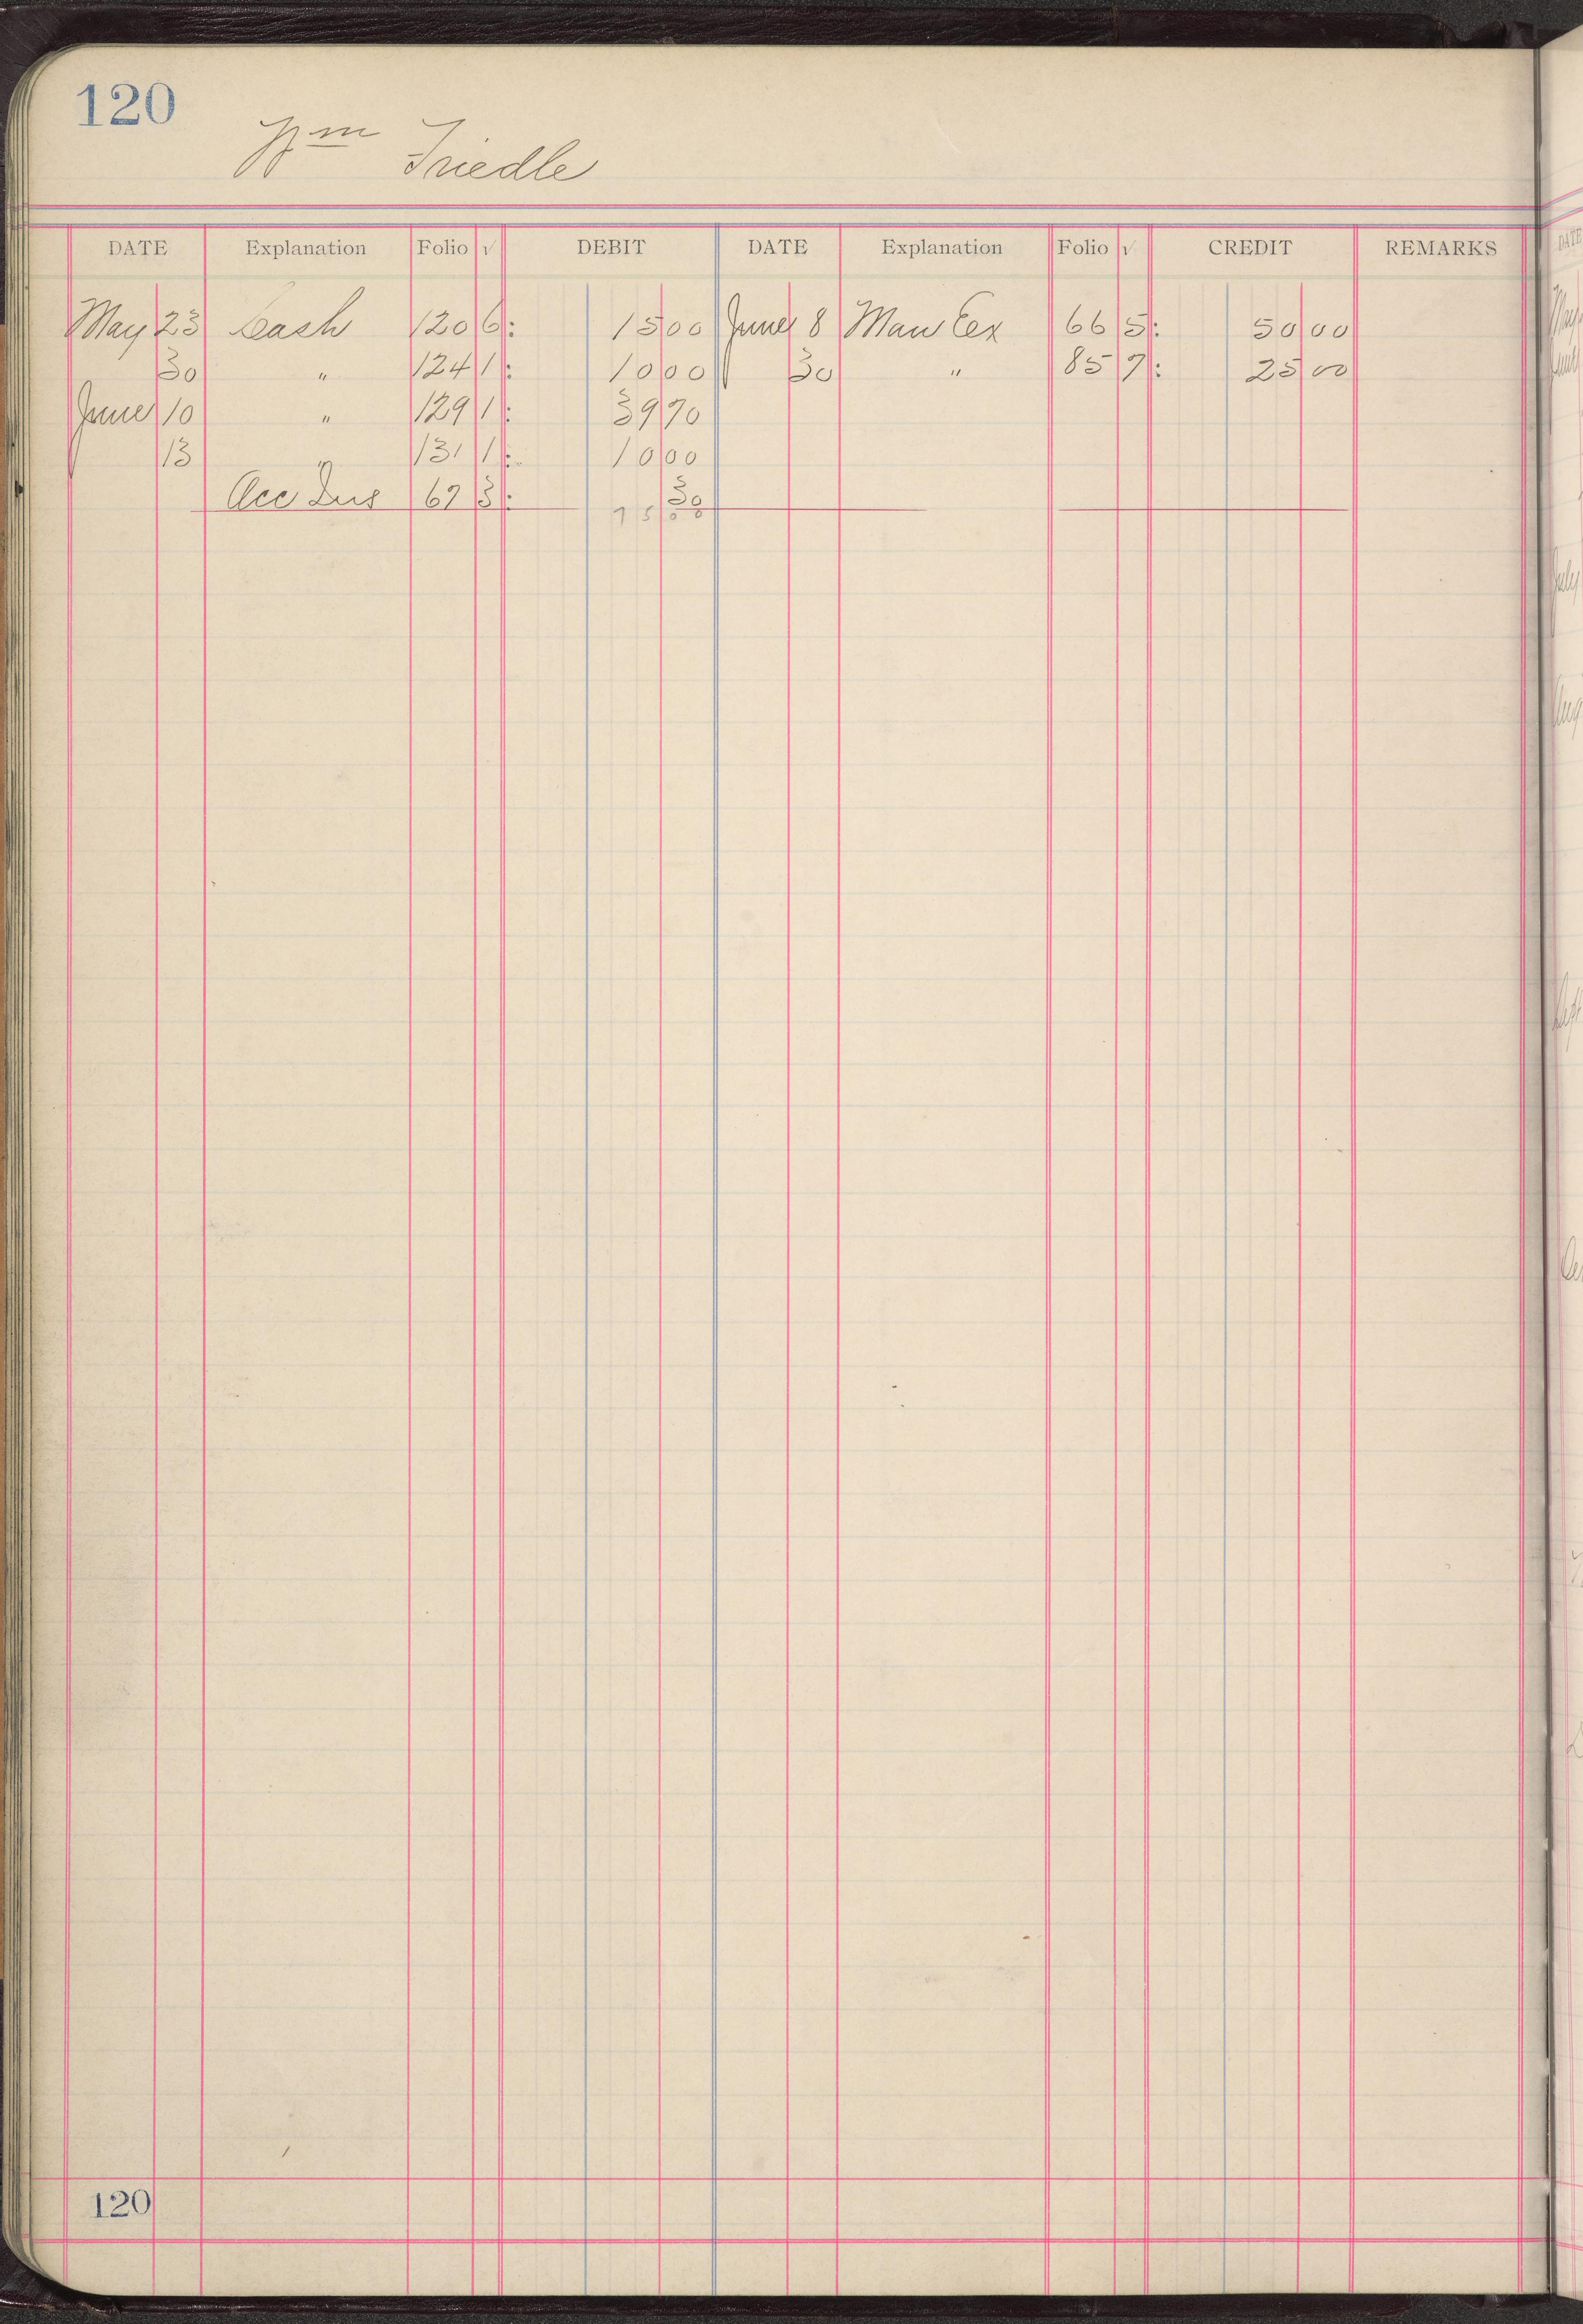 120
Wm Friedle
DATE Explanation Folio √ DEBIT DATE Explanation Folio √ CREDIT REMARKS
May 23 Cash 120 6: 15 00 June 8 Man Ex 66 5: 50 00
30 " 124 1: 10 00 30 " 85 7: 25 00
June 10 " 129 1: 39 70
13 " 131 1: 10 00
Acc Ins 67 3: 30
75 00
120